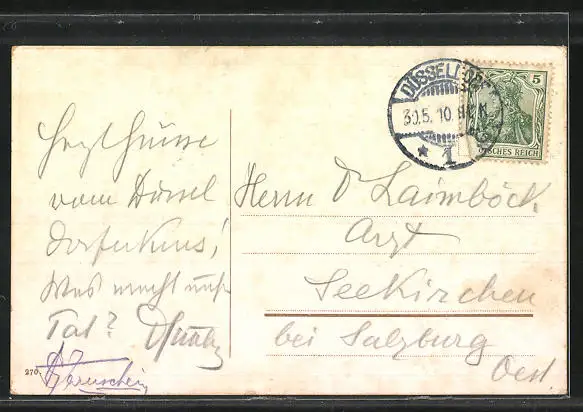 Herzl Grüsse
vom Düssel
dorfer
Was macht
Tat?
270
DÜSSELDORF
30.5.10.
* 1
5
DEUTSCHES REICH
Herrn Dr Laimböck
Arzt
Seekirchen
bei Salzburg
Oest.